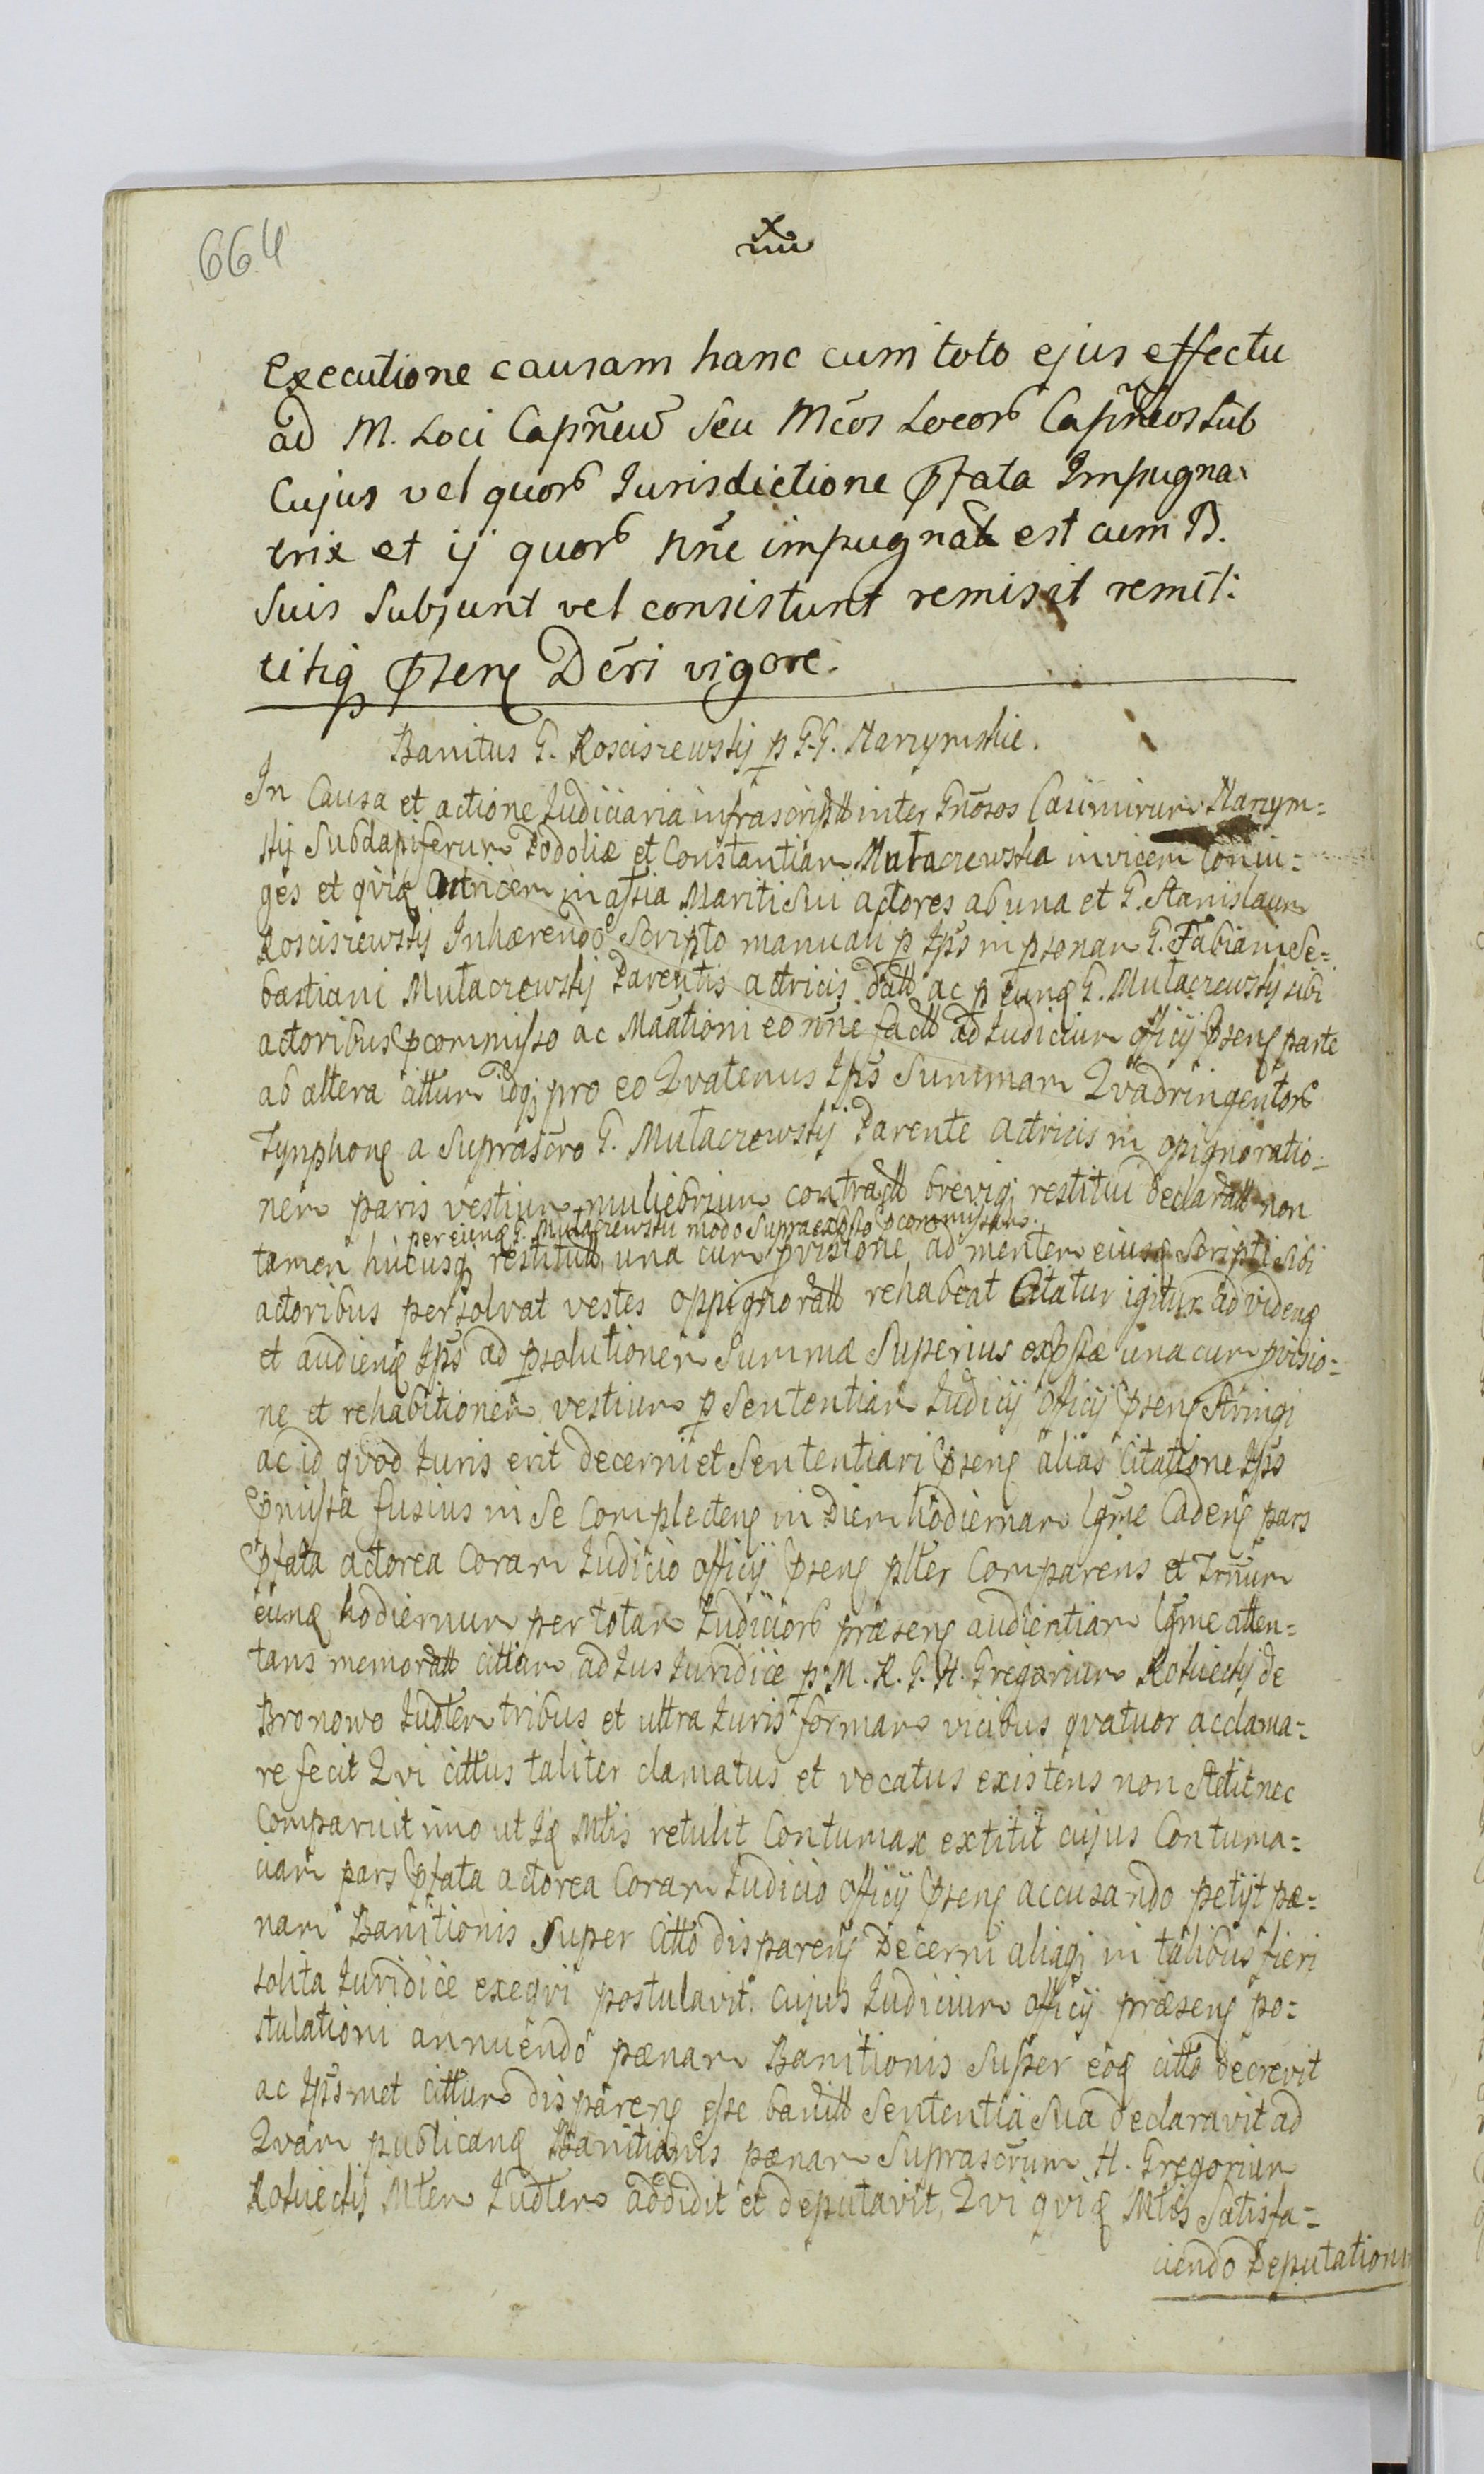 664
Executione causam hanc cum toto ejus effectu
ad M. Loci Capñeũ Seu Mcos Locorb Capñeos Sub
Cujus vel quorb Jurisdictione Pfata Impugna=
trix et ij quorb nne impugnatt est cum B.
Suis Subsunt vel consistunt remisit remit:
titq Psenq Dcri vigore.
Banitus G. Rosciszewskij p G.G. Narzymskie.
In Causa et actione Judiciaria infrascriptt inter Gnosos Casimirum Narzym=
skij Subdapiferum Podoliæ et Constantiam Mutaczewska invicem Coniu=
ges et qvidq Actricem in assia Mariti Sui actores ab una et G. Stanislaum
Rosciszewskij Inhærendo Scripto manuali p Ips in psonam G. Fabiani Se=
bastiani Mutaczewskij Parentis actricis datt ac p eundq G. Mutaczewskij sibi
actoribus Pcommisso ac Maationi eo nne factt ad Judicium officij Psenq parte
ab altera cittum idqj pro eo Qvatenus Ips Summam Qvadringentorb
Tynphonq a Suprascro G. Mutaczewskij Parente actricis in opignoratio=
nem paris vestium muliebrium contractt brevigj restitui declaratt non
per eundq G. Mutaczewskii modo Supraexpsto Pcommissam.
tamen hucusqj restitutt, una cum pvisione ad mentem eiusdq Scripti Sibi
actoribus persolvat vestes oppignoratt rehabeat Citatur igitur ad videnq
et audienq Ips ad psolutionem Summæ Superius expstæ una cum pvisio=
ne et rehabitionem vestium p Sententiam Judicij officij Psenq Stringi
ac id qvod Juris erit decerni et Sententiari Psenq alias Citatione Ips
Pmissa fusius in Se Complectenq in Diem hodiernam lgme Cadenq pars
Pfata actorea Coram Judicio officij Psenq plter Comparens et Trnum
eundq hodiernum per totam Judiciorb præsenq audientiam lgme atten=
tans memoratt cittum ad Jus Juridice p M. R. G. H. Gregorium Rotwieckij de
Bronowo Judtem tribus et ultra Juris formam vicibus qvatuor acclama=
re fecit Qvi cittus taliter clamatus et vocatus existens non Stetit nec
Comparuit imo ut Idq Mtis retulit Contumax extitit cujus Contuma=
ciam pars Pfata actorea Coram Judicio officij Psenq accusando petijt pæ=
nam Banitionis Super Citto disparenq Decerni aliaqj in talibus fieri
solita Juridice exeqvi postulavit. cujus Judicium officij præsenq po=
stulationi annuendo pænam Banitionis Super eodq citto decrevit
ac Ipsmet cittum disparenq esse banitt Sententia Sua declaravit ad
Qvam publicandq Banitionis pænam Suprascrum H. Gregorium
Rotwieckij Mtem Judtem addidit et deputavit, Qvi qvidq Mtis Satisfa=
ciendo Deputationi